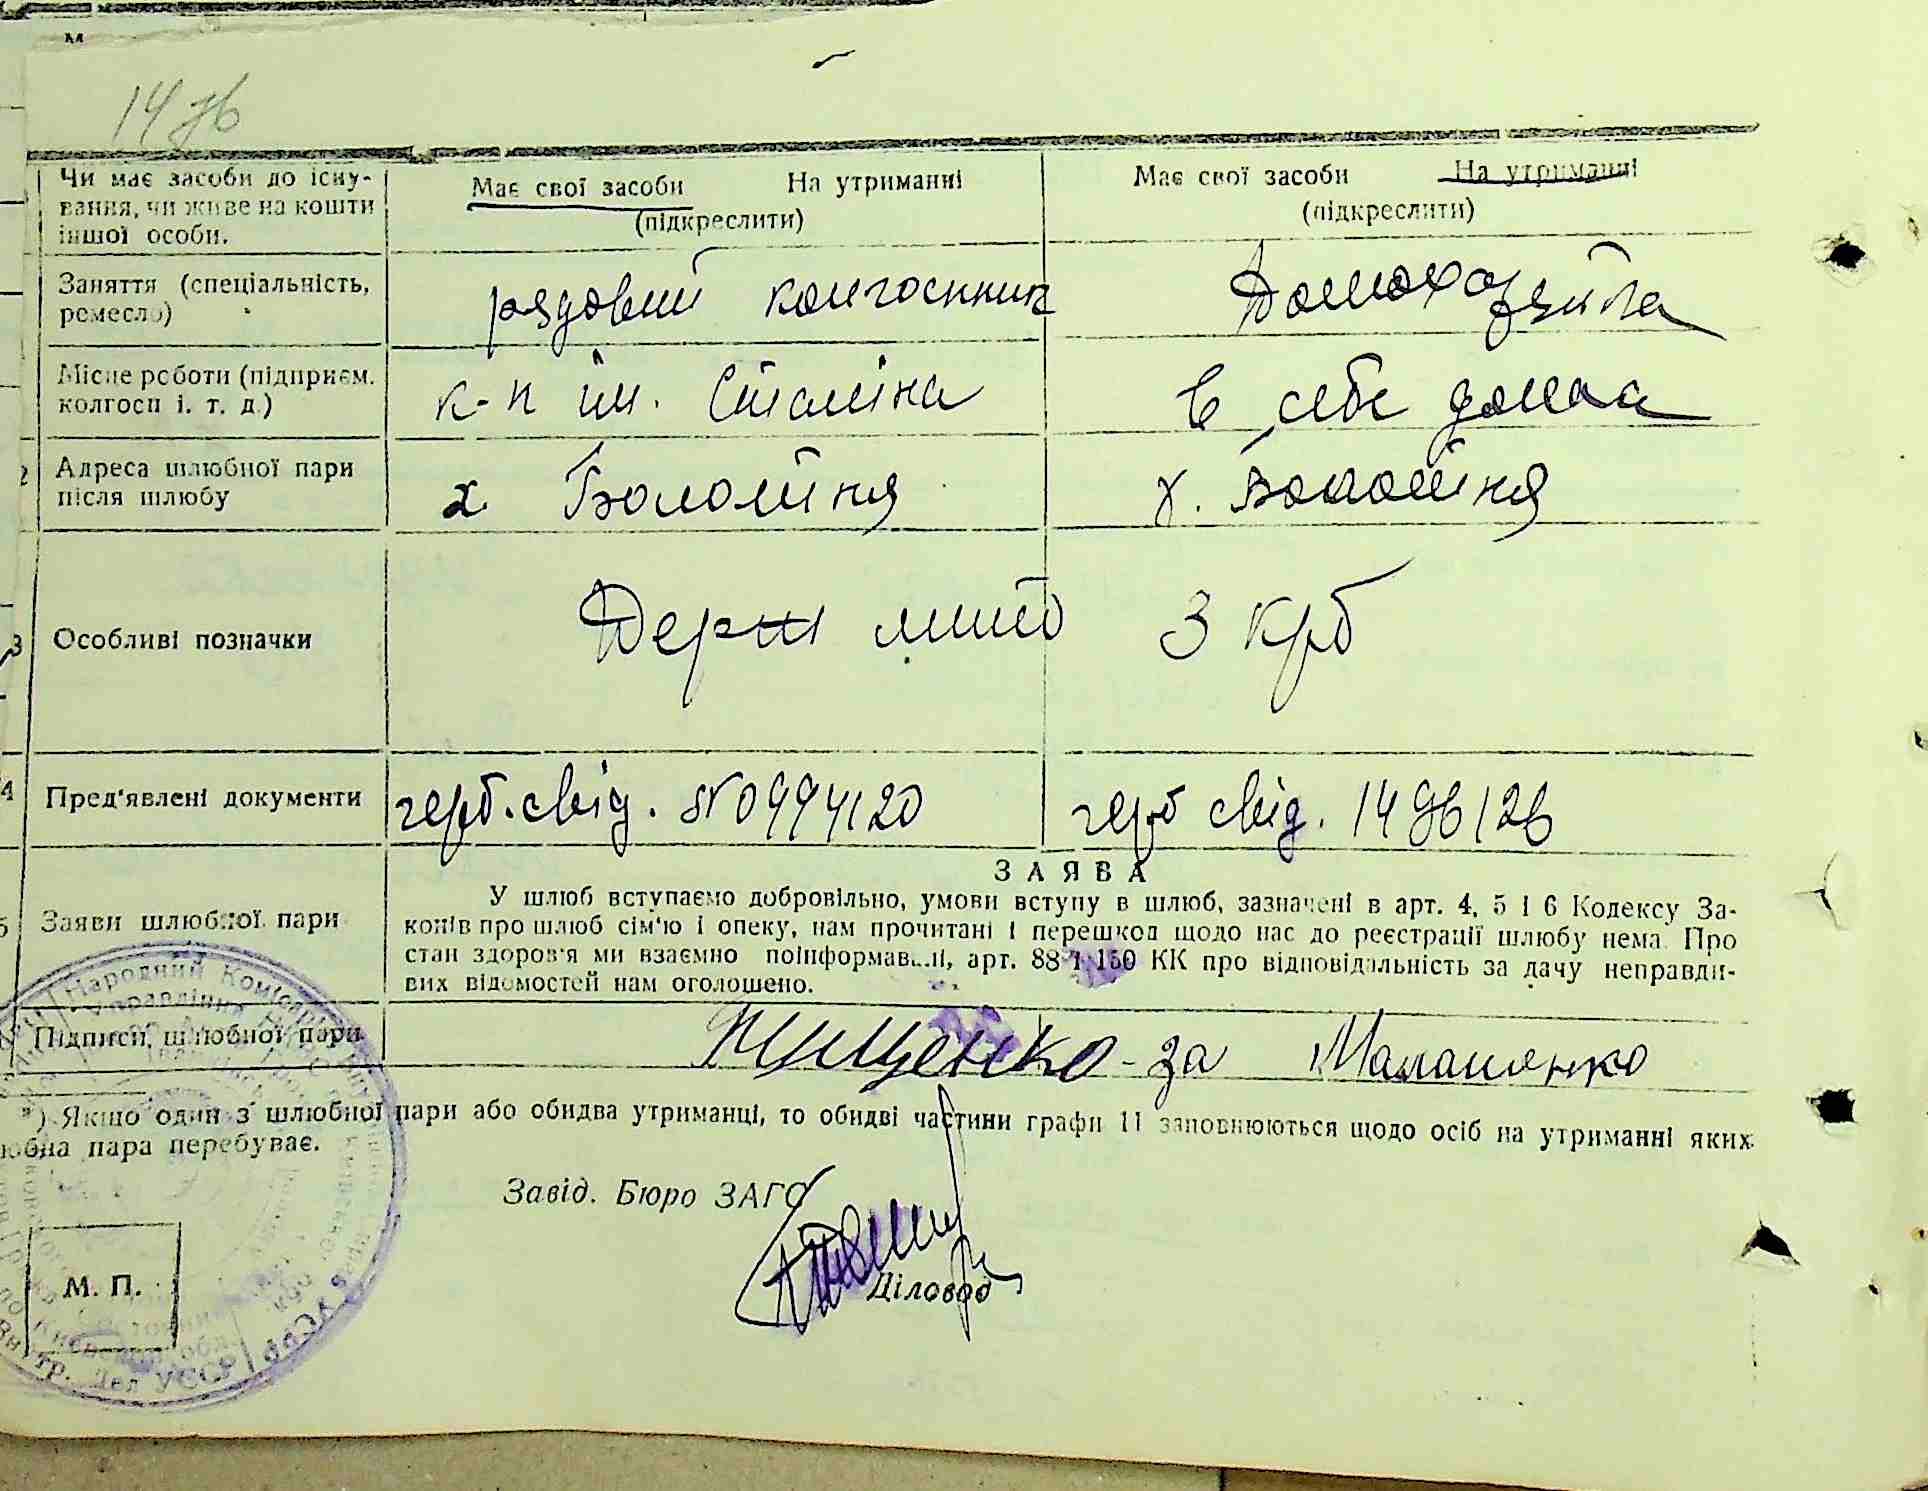 14 дв
Чи має засоби до існу-
вання, чи живе на кошти
іншої особи.
Має свої засоби На утриманні
(підкреслити)
Має свої засоби На утриманні
(підкреслити)
Заняття (спеціальність,
ремесло)
рядовий колгоспник
Домохазяйка
Місце роботи (підприєм.
колгосп і. т. д.)
к-п ім. Сталіна
в себе дома
Адреса шлюбної пари
після шлюбу
х Болотня
х. Болотня
3 Особливі позначки
Держ мито 3 крб
4 Пред'явлені документи
герб. свід. № 0994120
герб свід. 14 дв 126
ЗАЯВА
5 Заяви шлюбної пари
У шлюб вступаємо добровільно, умови вступу в шлюб, зазначені в арт. 4, 5 і 6 Кодексу За-
конів про шлюб сім'ю і опеку, нам прочитані і перешкод щодо нас до реєстрації шлюбу нема. Про
стан здоров'я ми взаємно поінформавані, арт. 88-1 150 КК про відповідальність за дачу неправди-
вих відомостей нам оголошено.
Підписи, шлюбної пари
Тищенко - за Малашенко
*) Якщо один з шлюбної пари або обидва утриманці, то обидві частини графи 11 заповнюються щодо осіб на утриманні яких
любна пара перебуває.
Завід. Бюро ЗАГС
Діловод
М. П.
Народний Комісаріат
Управління НКВС
Внутр. Дел УССР